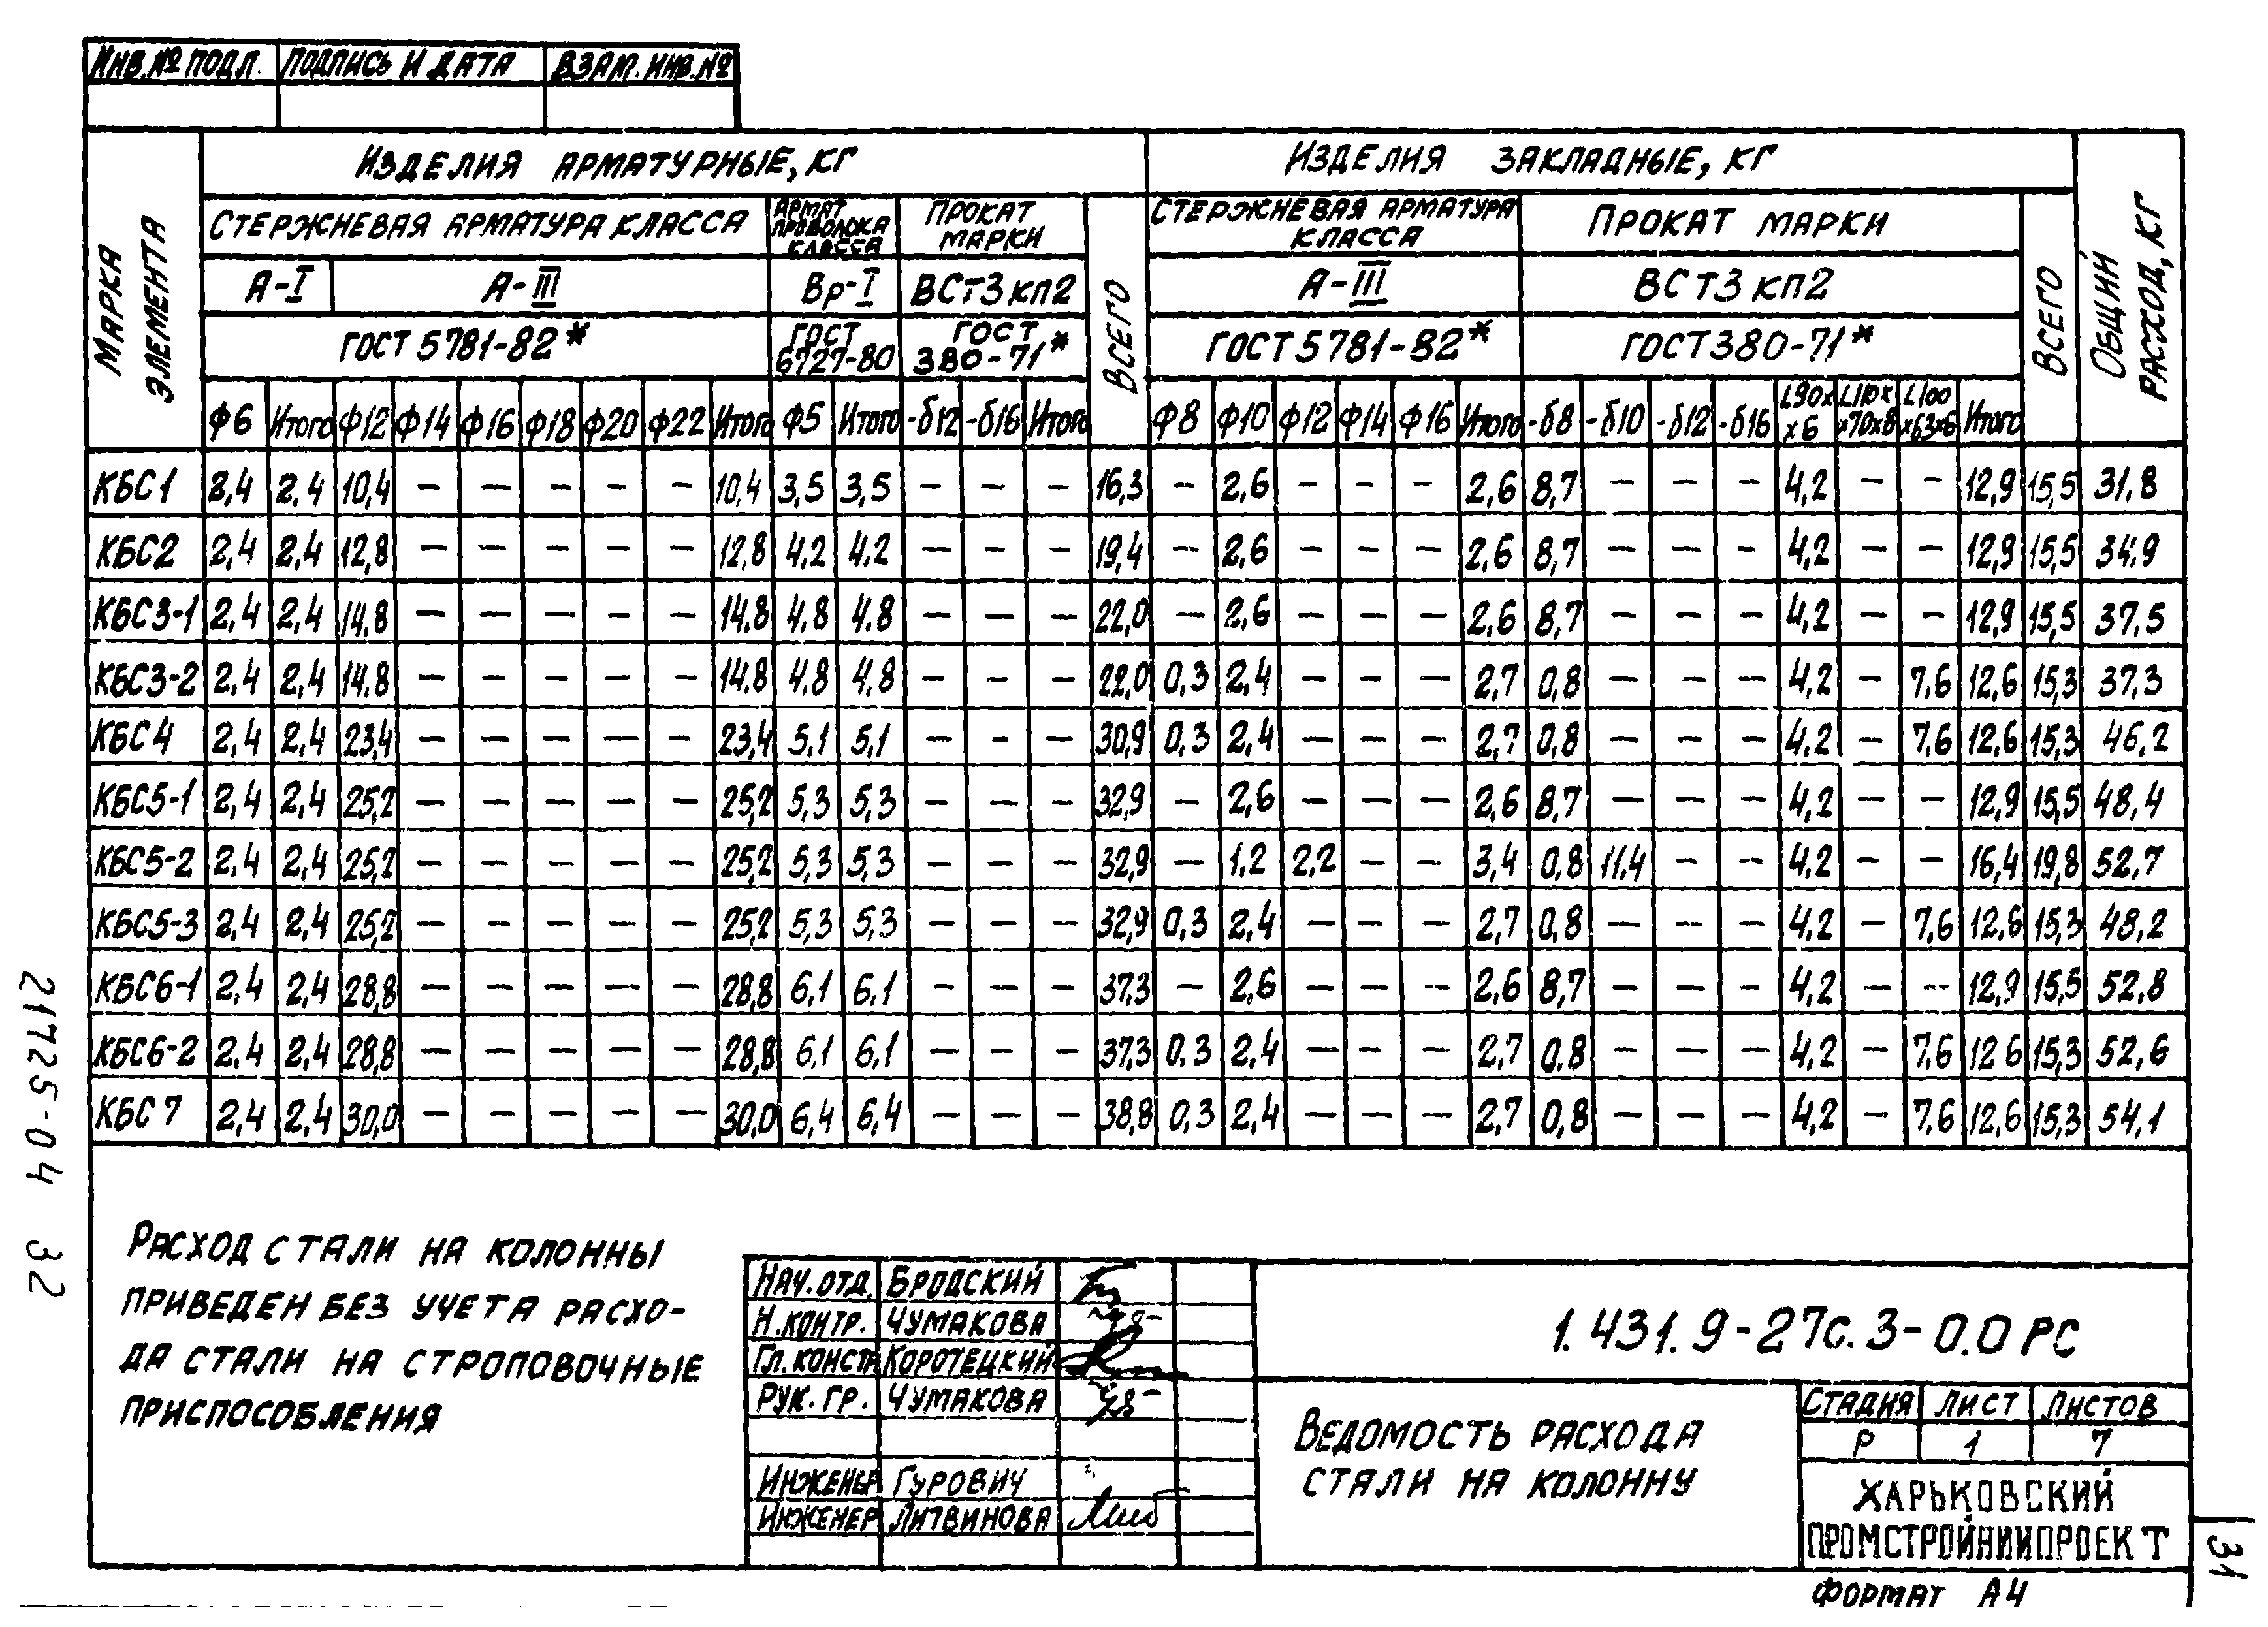 ИНВ.№ ПОДЛ. ПОДПИСЬ И ДАТА ВЗАМ. ИНВ.№
МАРКА ЭЛЕМЕНТА
ИЗДЕЛИЯ АРМАТУРНЫЕ, КГ ИЗДЕЛИЯ ЗАКЛАДНЫЕ, КГ
ОБЩИЙ РАСХОД, КГ
СТЕРЖНЕВАЯ АРМАТУРА КЛАССА АРМАТ ПРОВОЛОКА КЛАССА ПРОКАТ МАРКИ ВСЕГО СТЕРЖНЕВАЯ АРМАТУРА КЛАССА ПРОКАТ МАРКИ ВСЕГО
А-I А-III Вр-I ВСт3кп2 А-III ВСт3кп2
ГОСТ 5781-82* ГОСТ 6727-80 ГОСТ 380-71* ГОСТ 5781-82* ГОСТ 380-71*
Ф6 Итого Ф12 Ф14 Ф16 Ф18 Ф20 Ф22 Итого Ф5 Итого -δ12 -δ16 Итого Ф8 Ф10 Ф12 Ф14 Ф16 Итого -δ8 -δ10 -δ12 -δ16 L90××6 L110××70×8 L100×63×6 Итого
КБС1 2,4 2,4 10,4 — — — — — 10,4 3,5 3,5 — — — 16,3 — 2,6 — — — 2,6 8,7 — — — 4,2 — — 12,9 15,5 31,8
КБС2 2,4 2,4 12,8 — — — — — 12,8 4,2 4,2 — — — 19,4 — 2,6 — — — 2,6 8,7 — — — 4,2 — — 12,9 15,5 34,9
КБС3-1 2,4 2,4 14,8 — — — — — 14,8 4,8 4,8 — — — 22,0 — 2,6 — — — 2,6 8,7 — — — 4,2 — — 12,9 15,5 37,5
КБС3-2 2,4 2,4 14,8 — — — — — 14,8 4,8 4,8 — — — 22,0 0,3 2,4 — — — 2,7 0,8 — — — 4,2 — 7,6 12,6 15,3 37,3
КБС4 2,4 2,4 23,4 — — — — — 23,4 5,1 5,1 — — — 30,9 0,3 2,4 — — — 2,7 0,8 — — — 4,2 — 7,6 12,6 15,3 46,2
КБС5-1 2,4 2,4 25,2 — — — — — 25,2 5,3 5,3 — — — 32,9 — 2,6 — — — 2,6 8,7 — — — 4,2 — — 12,9 15,5 48,4
КБС5-2 2,4 2,4 25,2 — — — — — 25,2 5,3 5,3 — — — 32,9 — 1,2 2,2 — — 3,4 0,8 11,4 — — 4,2 — — 16,4 19,8 52,7
КБС5-3 2,4 2,4 25,2 — — — — — 25,2 5,3 5,3 — — — 32,9 0,3 2,4 — — — 2,7 0,8 — — — 4,2 — 7,6 12,6 15,3 48,2
КБС6-1 2,4 2,4 28,8 — — — — — 28,8 6,1 6,1 — — — 37,3 — 2,6 — — — 2,6 8,7 — — — 4,2 — — 12,9 15,5 52,8
КБС6-2 2,4 2,4 28,8 — — — — — 28,8 6,1 6,1 — — — 37,3 0,3 2,4 — — — 2,7 0,8 — — — 4,2 — 7,6 12 6 15,3 52,6
КБС7 2,4 2,4 30,0 — — — — — 30,0 6,4 6,4 — — — 38,8 0,3 2,4 — — — 2,7 0,8 — — — 4,2 — 7,6 12,6 15,3 54,1
21725-04 32
РАСХОД СТАЛИ НА КОЛОННЫ
ПРИВЕДЕН БЕЗ УЧЕТА РАСХО-
ДА СТАЛИ НА СТРОПОВОЧНЫЕ
ПРИСПОСОБЛЕНИЯ
НАЧ.ОТД. БРОДСКИЙ
Н.КОНТР. ЧУМАКОВА
ГЛ.КОНСТР. КОРОТЕЦКИЙ
РУК.ГР. ЧУМАКОВА
ИНЖЕНЕР ГУРОВИЧ
ИНЖЕНЕР ЛИТВИНОВА
1.431.9-27с.3-0.0РС
ВЕДОМОСТЬ РАСХОДА
СТАЛИ НА КОЛОННУ
СТАДИЯ ЛИСТ ЛИСТОВ
Р 1 7
ХАРЬКОВСКИЙ
ПРОМСТРОЙНИИПРОЕКТ
31
ФОРМАТ А4